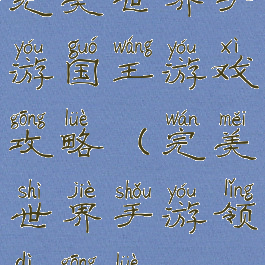 完美世界手
yóu guó wáng yóu xì
游国王游戏
gōng luè wán měi
攻略（完美
shì jiè shǒu yóu lǐng
世界手游领
dì gōng luè